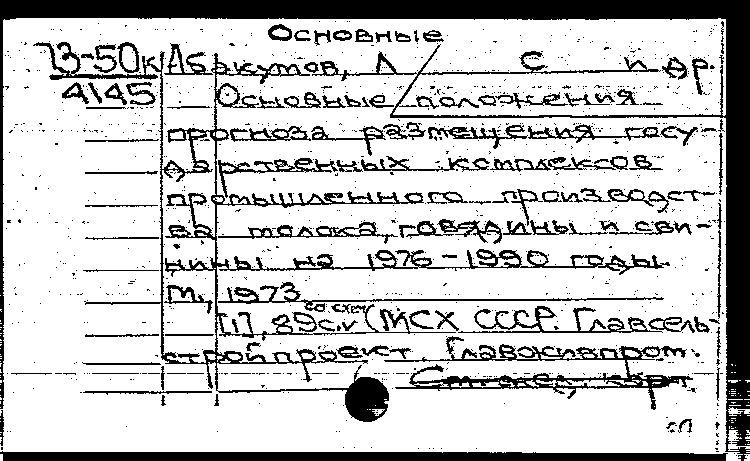 Основные
73-50к Абакумов, Л С и др.
4145 Основные положения
прогноза размещения госу-
дарственных комплексов
промышленного производст-
ва молока, говядины и сви-
нины на 1976-1990 годы.
М., 1973
[1], 89 с. со схем. (МСХ СССР. Главсель-
стройпроект. Главживпром.
сл